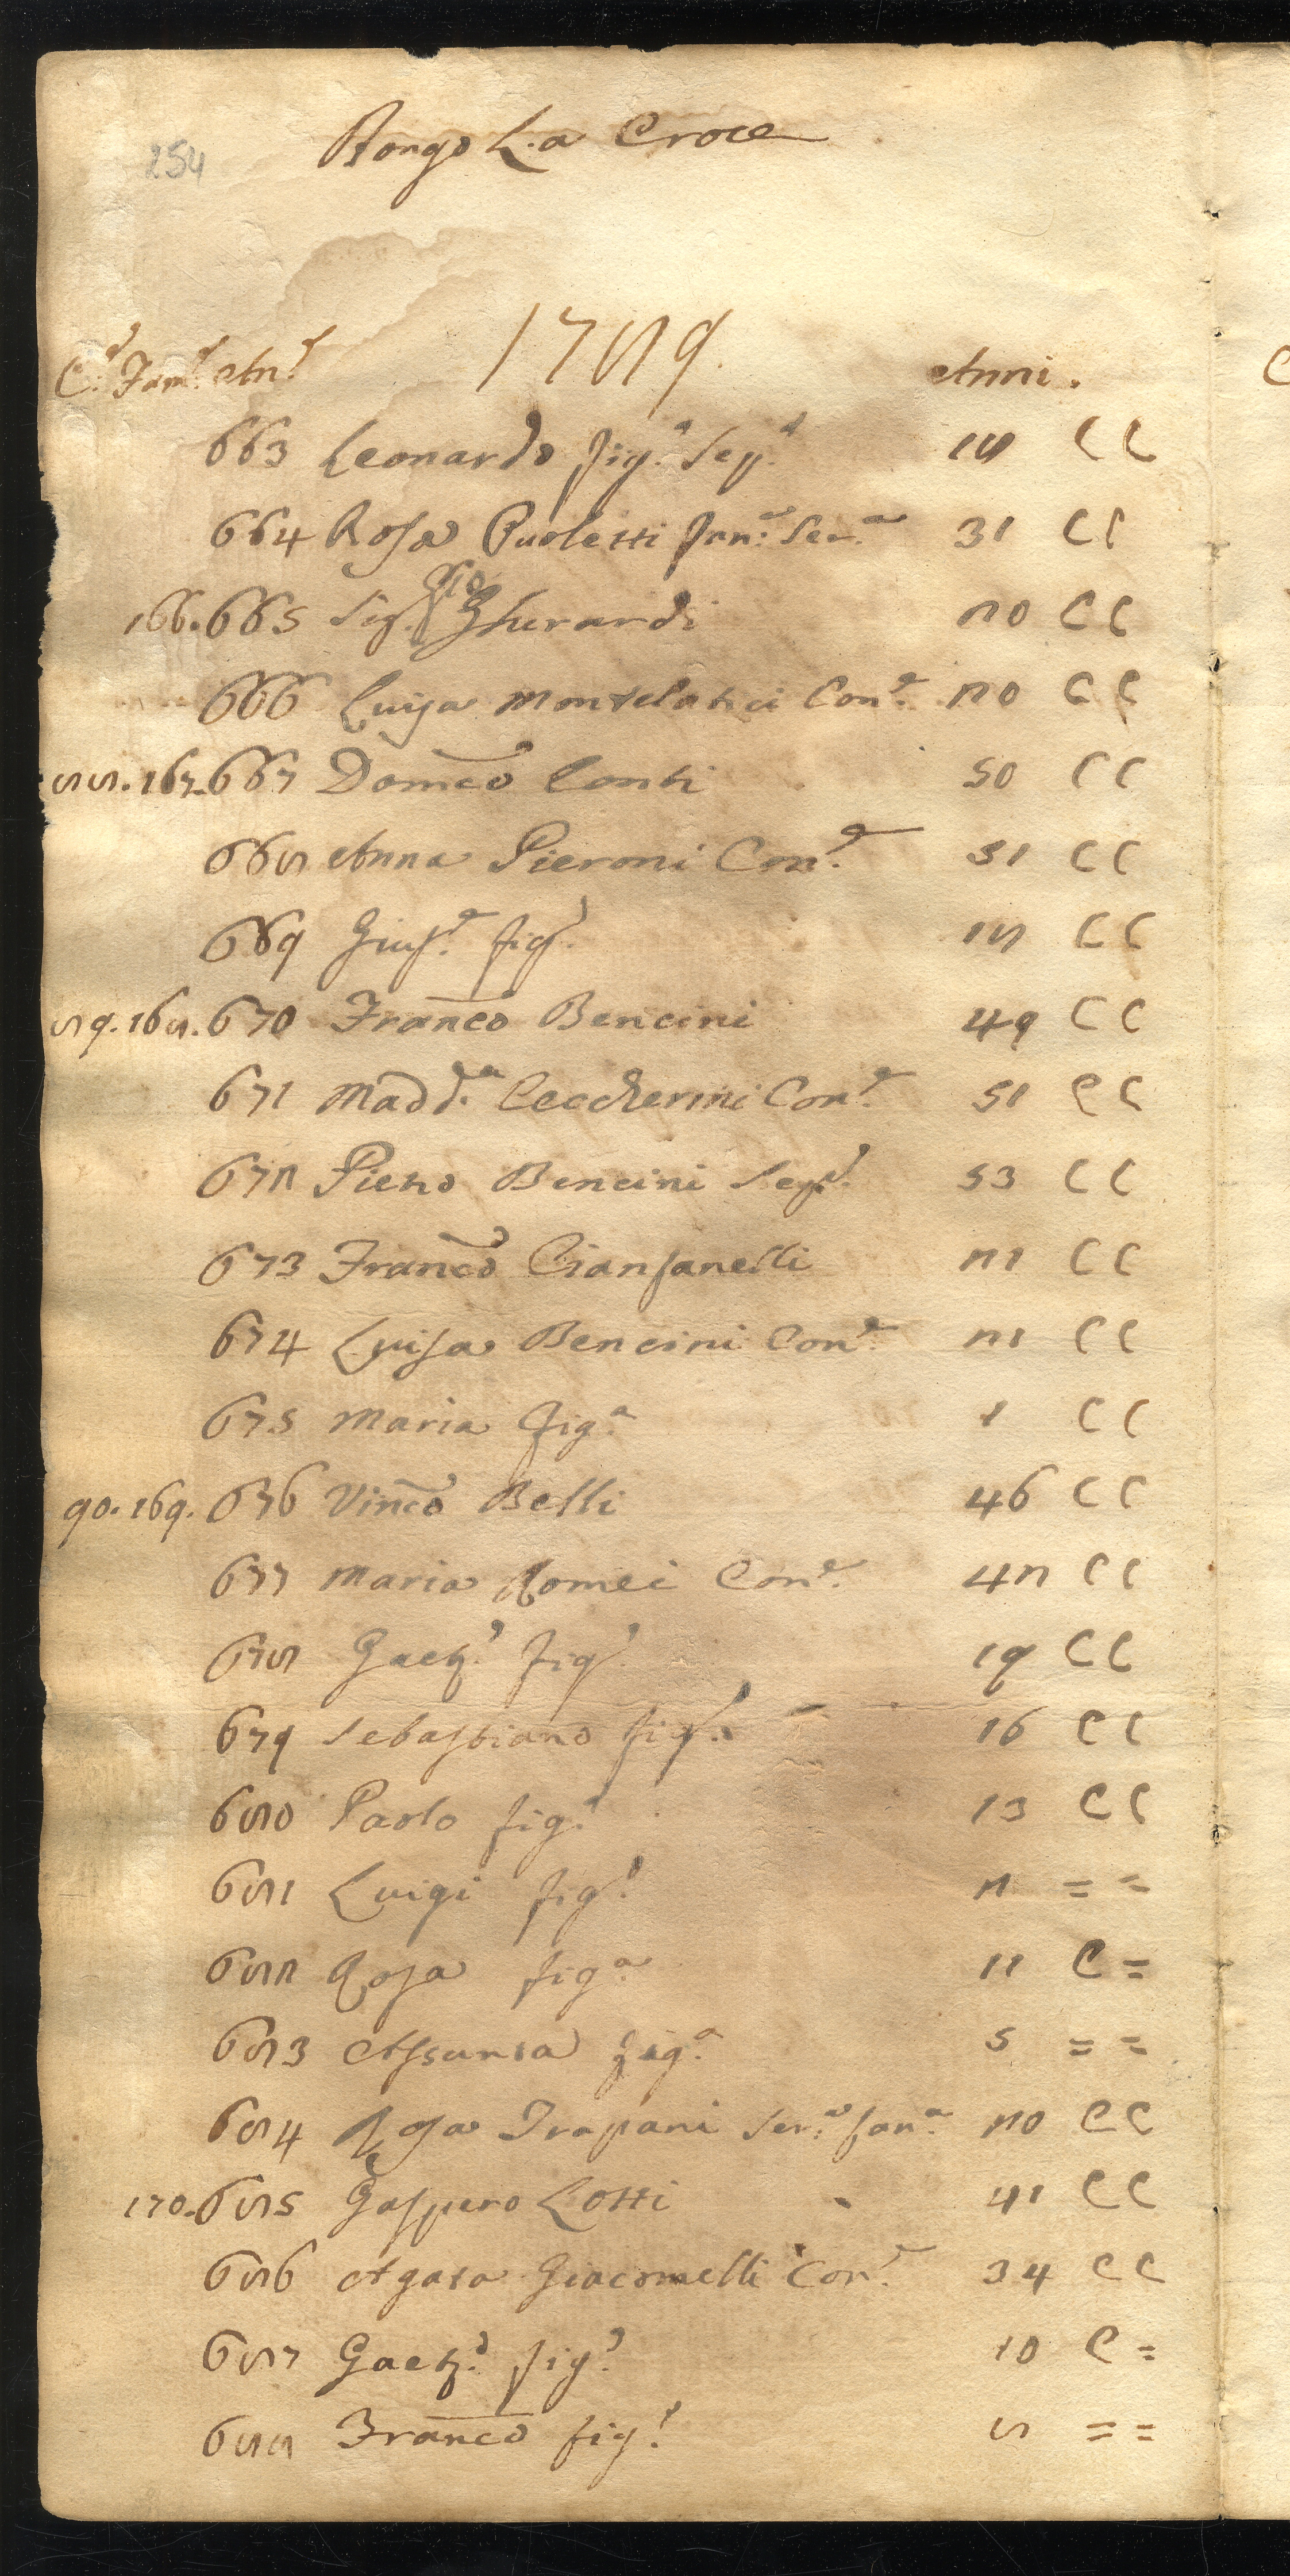 254
Borgo L.a Croce
C.e Fam.e An.e 1789. Anni.
663 Leonardo fig.o Sep.o 18 C C
664 Rosa Paoletti fan.a Ser.a 31 C C
166. 665 Sig. Gio Gherardi 20 C C
666 Luisa Montelatici Con.e 20 C C
88. 167. 667 Domco Conti 50 C C
668 Anna Pieroni Con.e 51 C C
669 Gius.e fig.o 18 C C
89. 168. 670 Franco Bencini 49 C C
671 Madd.a Ceccherini Con.e 51 C C
672 Pietro Bencini Sep.o 53 C C
673 Franco Cianfanelli 21 C C
674 Luisa Bencini Con.e 21 C C
675 Maria fig.a 1 C C
90. 169. 676 Vinco Belli 46 C C
677 Maria Romei Con.e 42 C C
678 Gaet.o fig.o 19 C C
679 Sebastiano fig.o 16 C C
680 Paolo fig.o 13 C C
681 Luigi fig.o 2 = =
682 Rosa fig.a 11 C =
683 Assunta fig.a 5 = =
684 Rosa Trapani Ser.a fan.a 20 C C
170. 685 Gaspero Lotti 41 C C
686 Agata Giacomelli Con.e 34 C C
687 Gaet.o fig.o 10 C =
688 Franco fig.o 8 = =